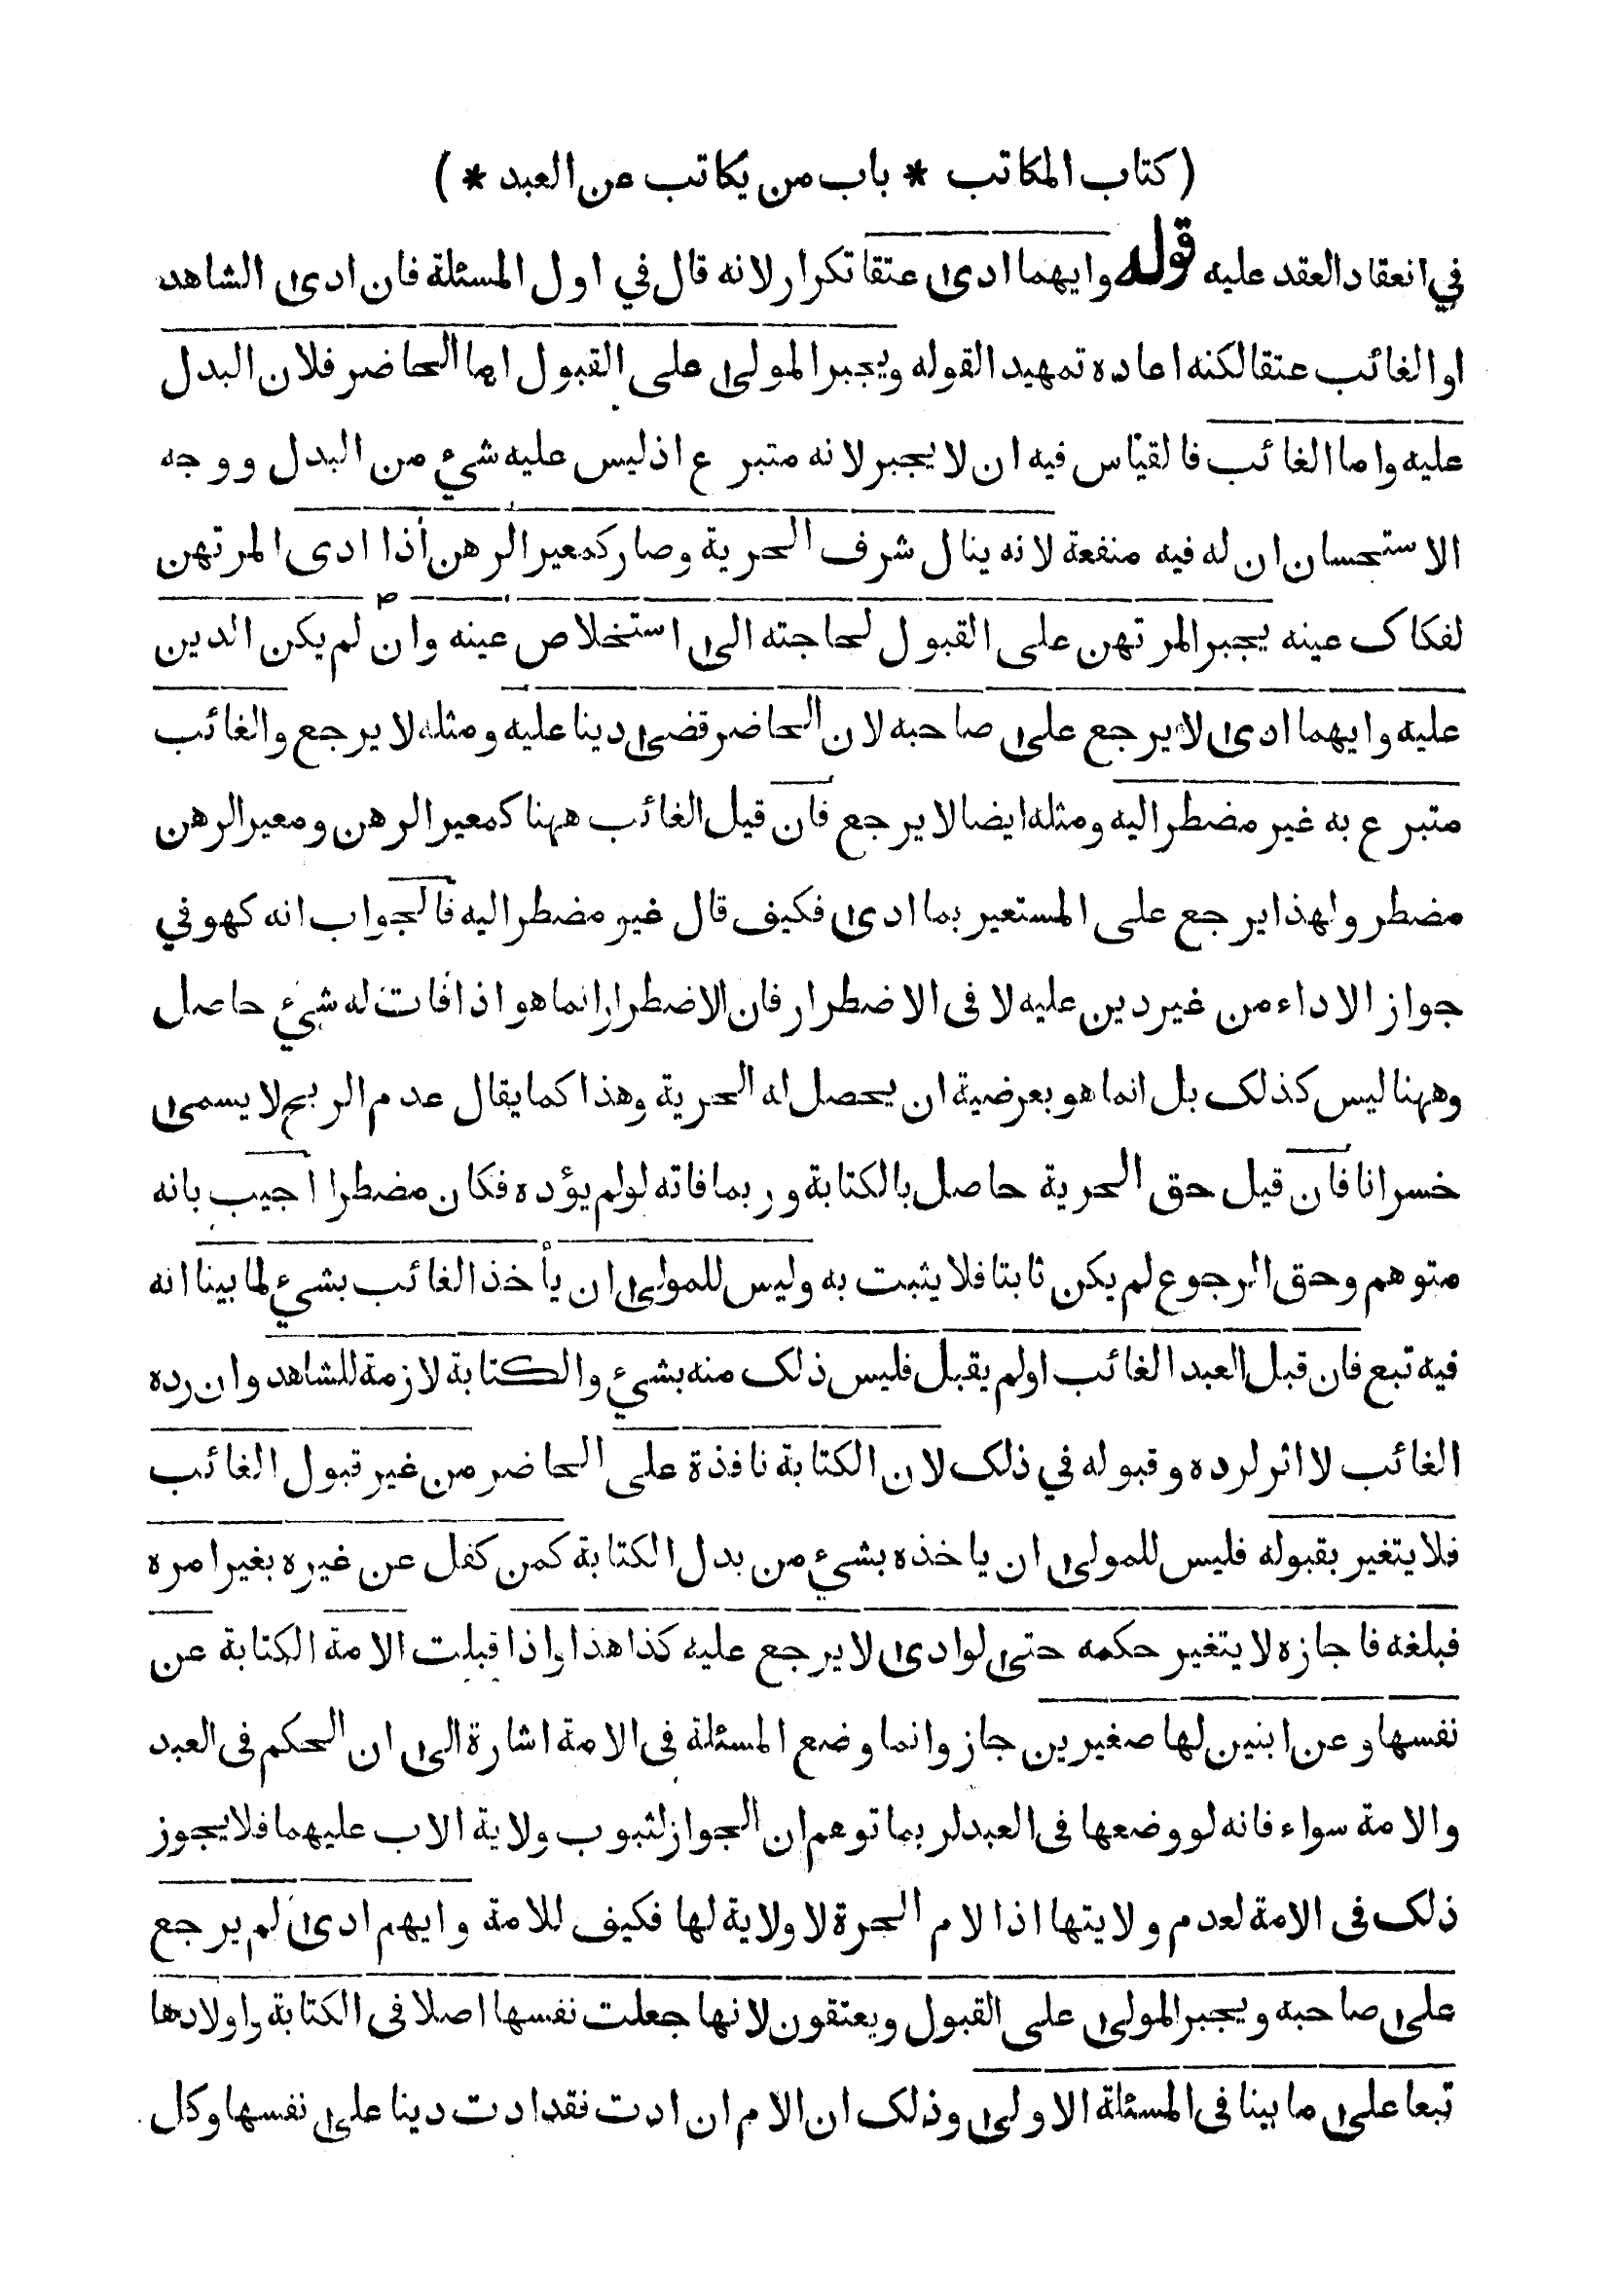 ( كتاب المكاتب * باب من يكاتب عن العبد * )
في انعقاد العقد عليه قوله وايهما ادى عتقا تكرار لانه قال في اول المسئلة فان ادى الشاهد
او الغائب عتقا لكنه اعاده تمهيدا لقوله ويجبر المولى على القبول اما الحاضر فلان البدل
عليه واما الغائب فالقياس فيه ان لا يجبر لانه متبرع اذ ليس عليه شيء من البدل ووجه
الاستحسان ان له فيه منفعة لانه ينال شرف الحرية وصار كمعير الرهن أذا ادى المرتهن
لفكاك عينه يجبر المرتهن على القبول لحاجته الى استخلاص عينه وان لم يكن الدين
عليه وايهما ادى لا يرجع على صاحبه لان الحاضر قضى دينا عليه ومثله لا يرجع والغائب
متبرع به غير مضطر اليه ومثله ايضا لا يرجع فان قيل الغائب ههنا كمعير الرهن ومعير الرهن
مضطر ولهذا يرجع على المستعير بما ادى فكيف قال غير مضطر اليه فالجواب انه كهو في
جواز الاداء من غير دين عليه لا فى الاضطرار فان الاضطرار انما هو اذا فات له شيء حاصل
وههنا ليس كذلك بل انما هو بعرضية ان يحصل له الحرية وهذا كما يقال عدم الربح لا يسمى
خسرانا فان قيل حق الحرية حاصل بالكتابة وربما فاته لو لم يؤده فكان مضطرا اجيب بانه
متوهم وحق الرجوع لم يكن ثابتا فلا يثبت به وليس للمولى ان يأخذ الغائب بشيء لما بينا انه
فيه تبع فان قبل العبد الغائب او لم يقبل فليس ذلك منه بشيء والكتابة لازمة للشاهد وان رده
الغائب لا اثر لرده وقبوله في ذلك لان الكتابة نافذة على الحاضر من غير قبول الغائب
فلا يتغير بقبوله فليس للمولى ان ياخذه بشيء من بدل الكتابة كمن كفل عن غيره بغير امره
فبلغه فاجازه لا يتغير حكمه حتى لو ادى لا يرجع عليه كذا هذا واذا قبلت الامة الكتابة عن
نفسها وعن ابنين لها صغيرين جاز وانما وضع المسئلة فى الامة اشارة الى ان الحكم فى العبد
والامة سواء فانه لو وضعها فى العبد لربما توهم ان الجواز لثبوب ولاية الاب عليهما فلا يجوز
ذلك فى الامة لعدم ولايتها اذا لام الحرة لا ولاية لها فكيف للامة وايهم ادى لم يرجع
على صاحبه ويجبر المولى على القبول ويعتقون لانها جعلت نفسها اصلا فى الكتابة واولادها
تبعا على ما بينا فى المسئلة الاولى وذلك ان الام ان ادت فقد ادت دينا على نفسها وكل